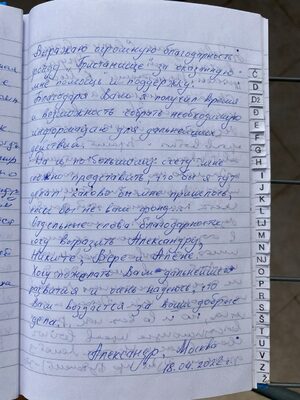 Выражаю огромную благодарность
фонду "Пристанище" за оказанную
мне помощь и поддержку.
Благодаря Вам я получил время
и возможность собрать необходимую
информацию для дальнейших
действий.
Да и по большому счету мне
сложно представить что бы я тут
делал каково бы мне пришлось,
если бы не ваш фонд.
Отдельные слова благодарности
хочу выразить Александру,
Никите, Вере и Алёне.
Хочу пожелать Вам дальнейшего
развития и очень надеюсь, что
Вам воздастся за ваши добрые
дела.
Александр, Москва
18.04.2022 г.
Č
D
DŽ
Đ
E
F
G
H
I
J
K
L
LJ
M
N
NJ
O
P
R
S
Š
T
U
V
Z